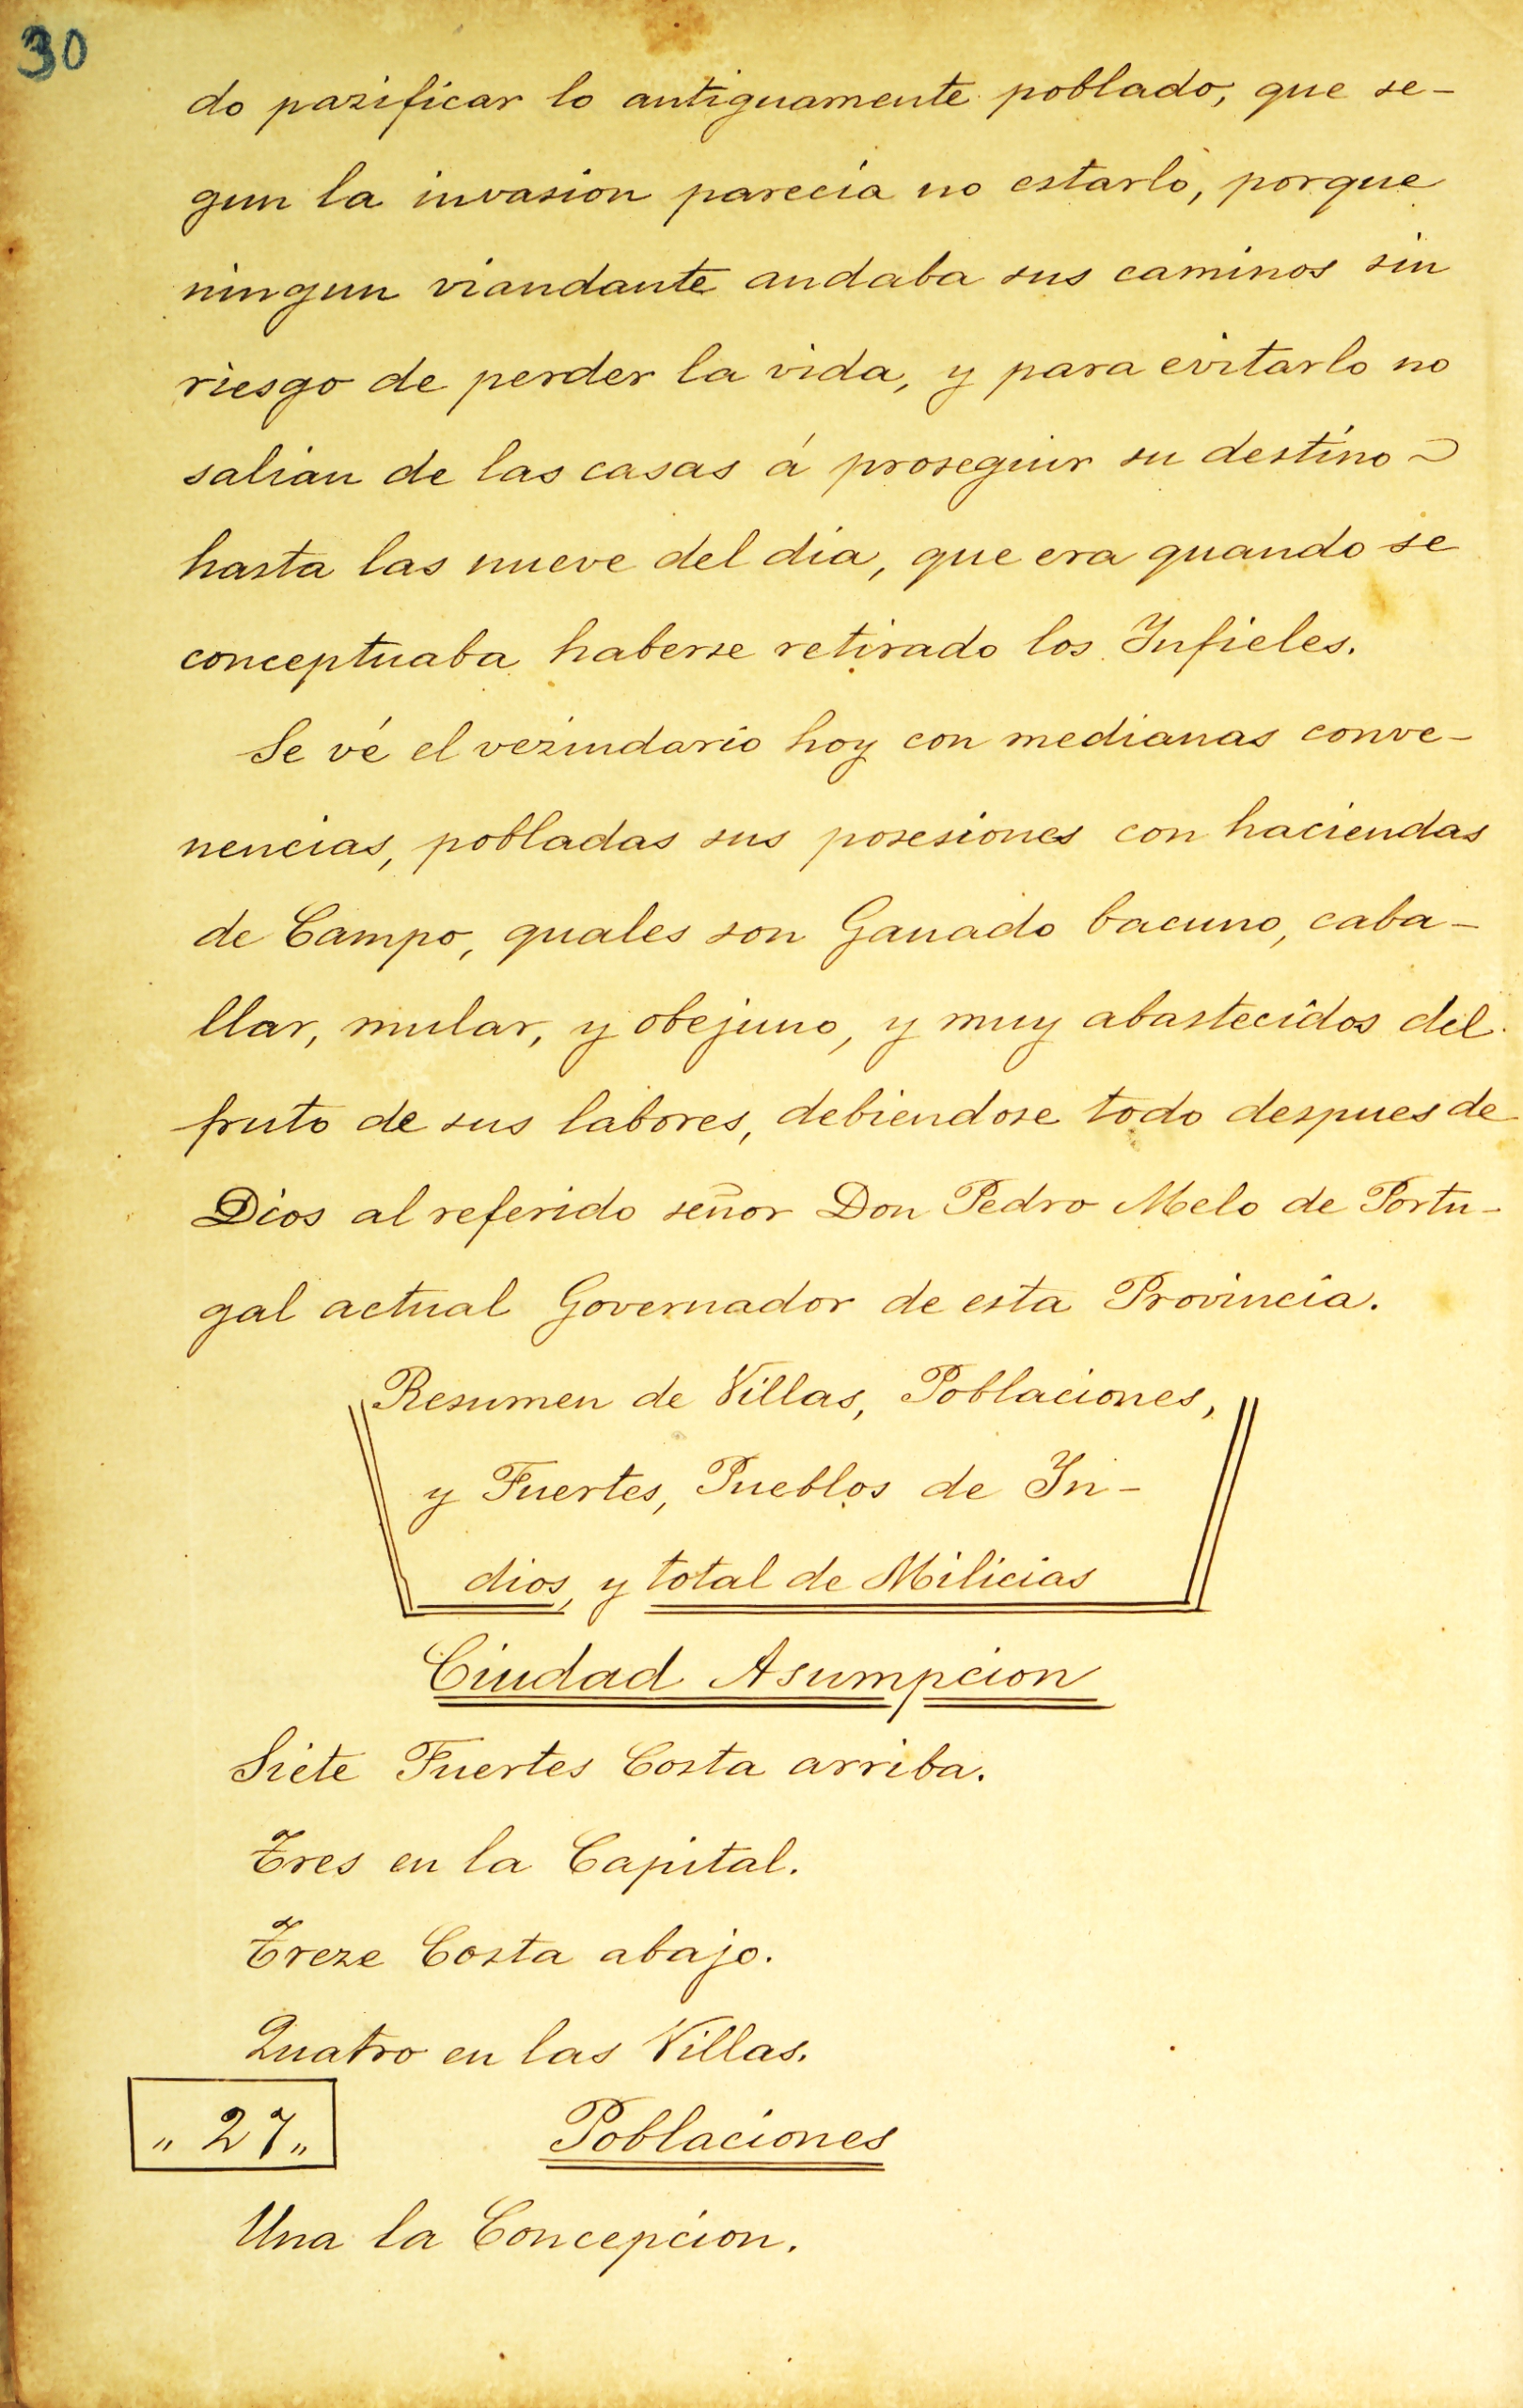 30
do pazificar lo antiguamente poblado, que se-
gun la invasion parecia no estarlo, porque
ningun viandante andaba sus caminos sin
riesgo de perder la vida, y para evitarlo no
salian de las casas á proseguir su destino
hasta las nueve del dia, que era quando se
conceptuaba haberse retirado los Infieles.
Se vé el vezindario hoy con medianas conve-
nencias, pobladas sus posesiones con haciendas
de Campo, quales son Ganado bacuno, caba-
llar, mular, y obejuno, y muy abastecidos del
fruto de sus labores, debiendose todo despues de
Dios al referido señor Don Pedro Melo de Portu-
gal actual Governador de esta Provincia.
Resumen de Villas, Poblaciones,
y Fuertes, Pueblos de In-
dios, y total de Milicias
Ciudad Asumpcion
Siete Fuertes Costa arriba.
Tres en la Capital.
Treze Costa abajo.
Quatro en las Villas.
„ 27 „ Poblaciones
Una la Concepcion.